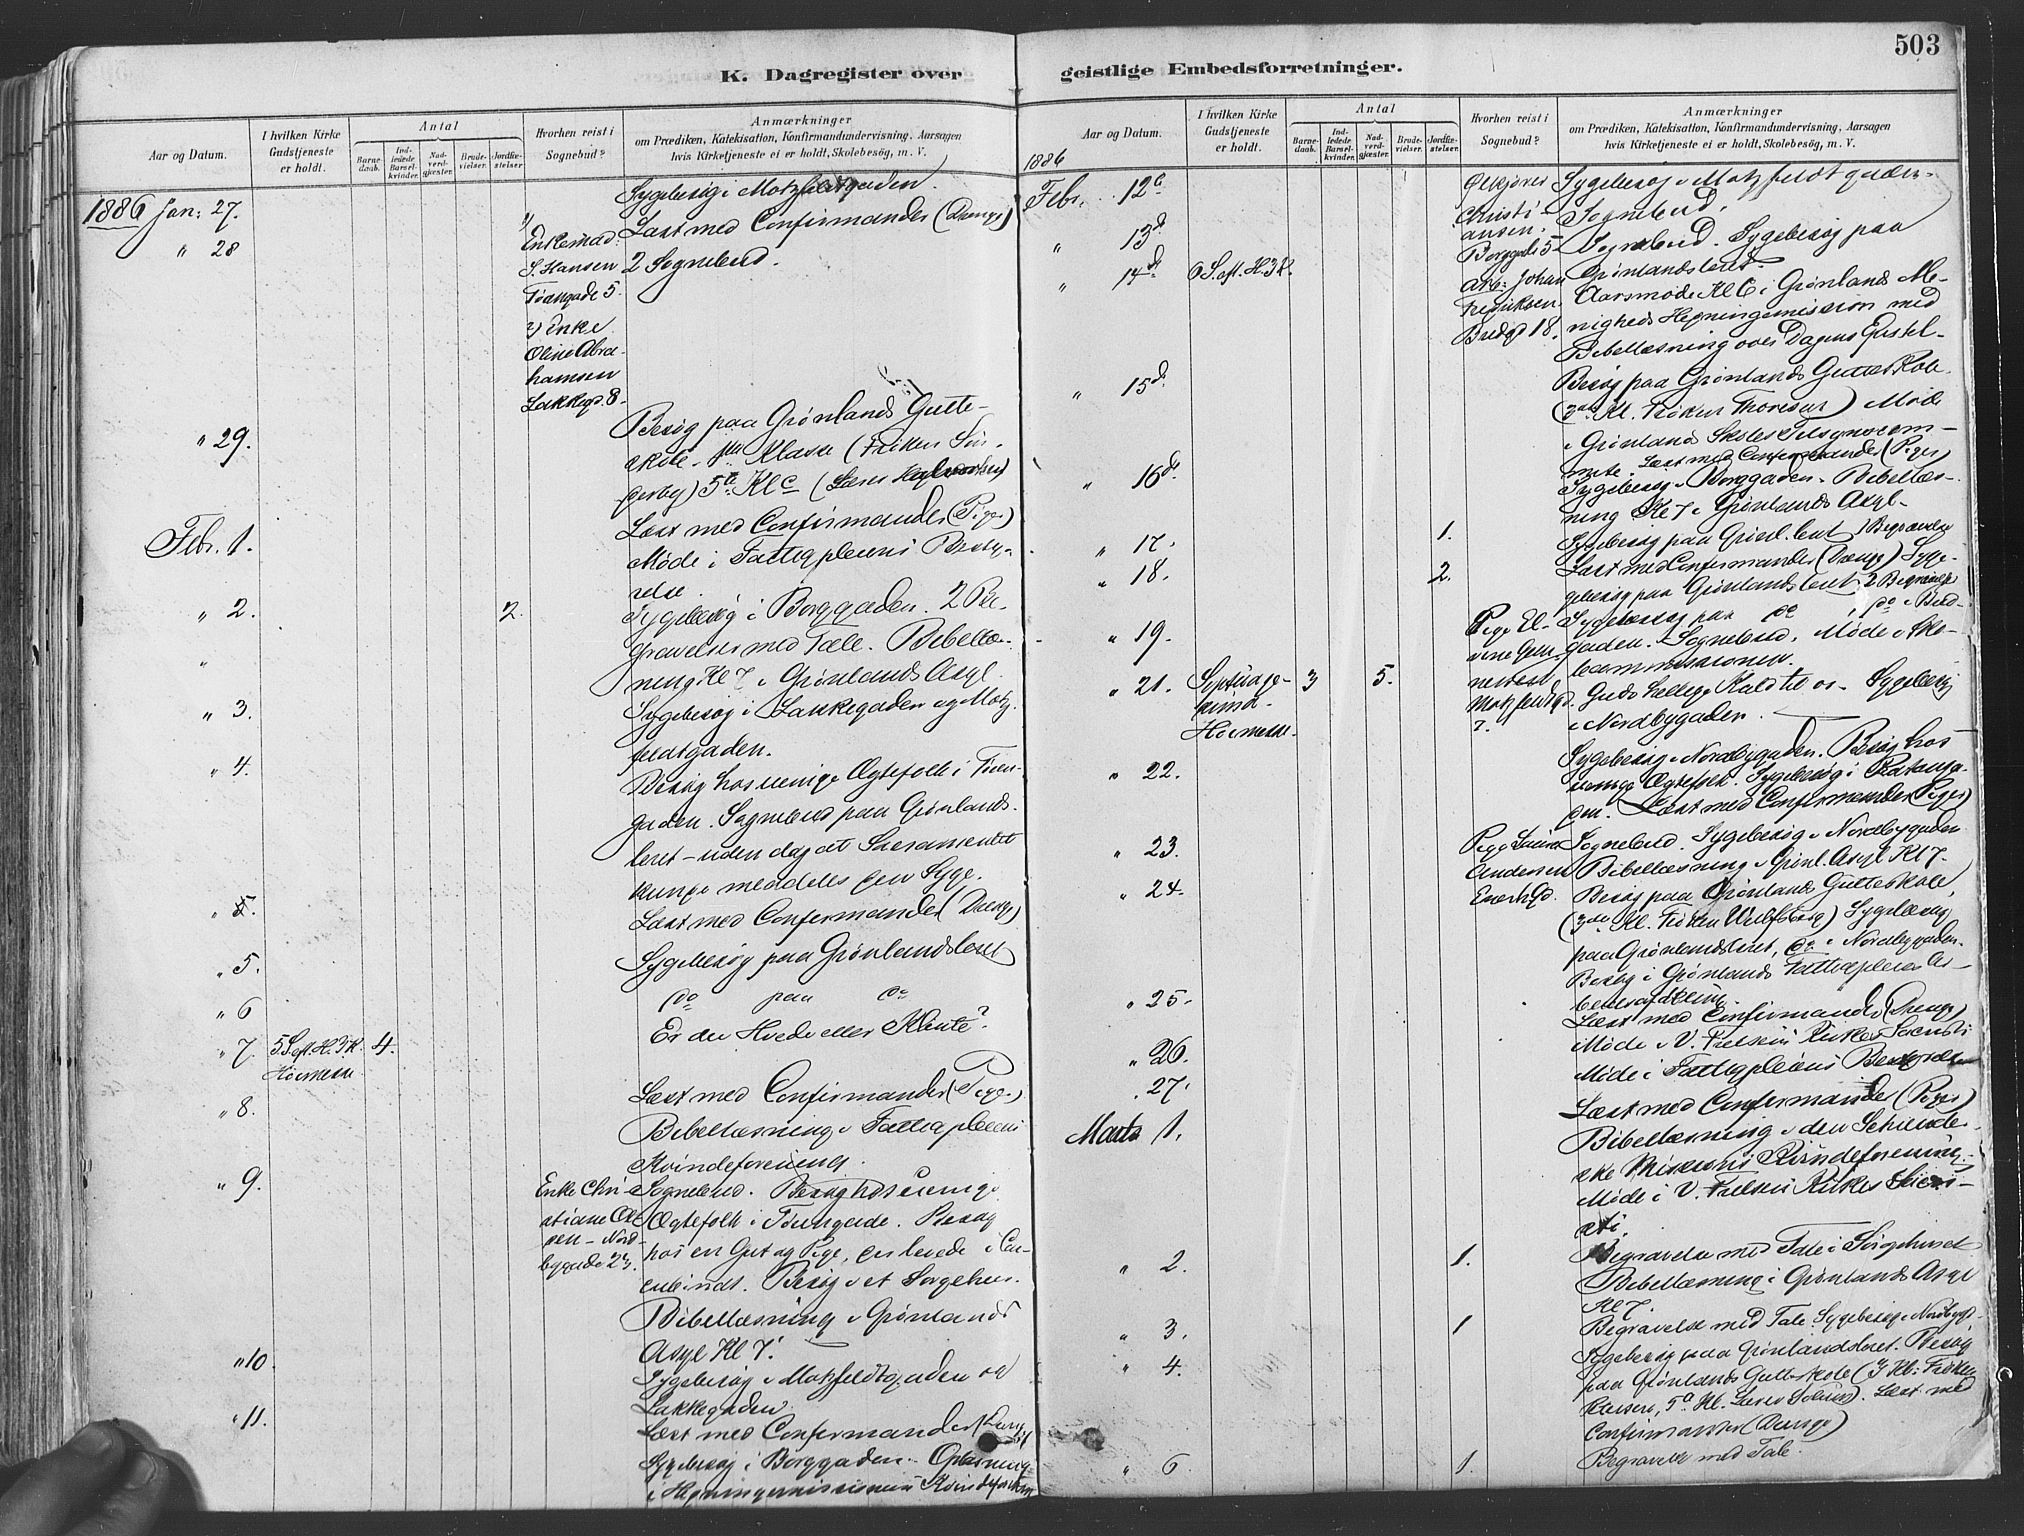 503
K. Dagregister over
geistlige Embedsforretninger.
Aar og Datum.
I hvilken Kirke
Gudstjeneste
er holdt.
Antal
Barne-
daab.
Ind-
ledede
Barsel-
kvinder.
Nad-
verd-
gjæster.
Brude-
vielser.
Jordfæ-
stelser.
Hvorhen reist i
Sognebud?
Anmærkninger
om Prædiken, Katekisation, Konfirmandundervisning, Aarsagen
hvis Kirketjeneste ei er holdt, Skolebesøg, m. V.
1886 Jan: 27.
Sygebesøg i Motzfeldtgaden.
Læst med Confirmander (Drenge)
" 28
1)
Enkemad:
S. Hansen
Tøiengade 5.
2) Enke
Oline Abra-
hamsen
Lakkegd. 8.
2 Sognebud.
" 29.
Besøg paa Grønlands Gutte-
skole. Klasse (Frøken
5te Kl c (Lærer
Læst med Confirmander (Piger)
Febr. 1.
Møde i Fattigpleiens Besty-
relse.
" 2.
2.
Sygebesøg i Borggaden. 2 Be-
gravelser med Tale. Bibellæ-
ning Kl 7 i Grønlands Asyl.
" 3.
Sygebesøg i Lakkegaden og Motz-
feldtgaden.
" 4.
Besøg hos uenige Ægtefolk i Tøien-
gaden. Sognebud paa Grønlands-
leret - uden dog at Sacramentet
kunde meddeles den Syge.
Læst med Confirmander (Drenge)
" 5.
Sygebesøg paa Grønlandsleret
" 6
do paa do
" 7.
5 S. eft. H. 3 K.
Høimesse
4.
Er du Hvede eller Klinte?
" 8.
Læst med Confirmander (Piger)
Bibellæsning i Fattigpleiens
Kvindeforening.
" 9.
Enke Chri-
stiane Ol-
sen - Nord-
bygade 23.
Sognebud. Besøg hos uenige
Ægtefolk i Tøiengade. Besøg
hos en Gut og Pige, der levede i Con-
cubinat. Besøg i et Sørgehus.
Bibellæsning i Grønlands
Asyl Kl 7.
" 10.
Sygebesøg i Motzfeldtgaden og
Lakkegaden.
" 11.
Læst med Confirmander (Drenge)
Sygebesøg i Borggaden. Oplæsning
i Hedningemissionens Kvindeforening
Aar og Datum.
I hvilken Kirke
Gudstjeneste
er holdt.
Antal
Barne-
daab.
Ind-
ledede
Barsel-
kvinder.
Nad-
verd-
gjæster.
Brude-
vielser.
Jordfæ-
stelser.
Hvorhen reist i
Sognebud?
Anmærkninger
om Prædiken, Katekisation, Konfirmandundervisning, Aarsagen
hvis Kirketjeneste ei er holdt, Skolebesøg, m. V.
1886
Febr. 12te
Christi-
ansen.
Borggade 5
Sygebesøg i Motzfeldtgaden.
Sognebud.
" 13de
Arb: Johan
Fredriksen
Bredgd 18.
Sognebud. Sygebesøg paa
Grønlandsleret.
" 14de
6 S. eft. H. 3 K.
Aarsmøde Kl 6 i Grønlands Me-
nigheds Hedningemission med
Bibellæsning over Dagens Epistel.
" 15de
Besøg paa Grønlands Gutteskole.
(3die Kl. Frøken Thoresen) Møde
i Grønlands Skoles Tilsynscom-
mite. Læst med Confirmander (Piger)
" 16de
Sygebesøg i Borggaden. Bibellæs-
ning Kl 7 i Grønlands Asyl.
" 17.
1.
Sygebesøg paa Grønl. leret 1 Begravelse
" 18.
2.
Læst med Confirmander (Drenge) Syge-
gebesøg paa Grønlandsleret 2 Begravelser
" 19.
Pige
Motzfeldtgd.
7.
Sygebesøg paa do, do i Bred-
gaden. Sognebud. Møde i Sko-
lecommissionen.
" 21.
Septuage-
sima
Høimesse.
3
5.
Guds hellige Kald til os. Sygebesøg
i Nordbygaden.
" 22.
Sygebesøg i Nordbygaden. Besøg hos
uenige Ægtefolk. Sygebesøg i Platousga-
den. Læst med Confirmander (Piger)
" 23.
Pige
Andersen
Enerhgd.
Sognebud. Sygebesøg i Nordbygaden
Bibellæsning i Grønl. Asyl Kl 7.
" 24.
Besøg paa Grønlands Gutteskole,
(3die Kl. Frøken Ulfsberg) Sygebesøg
paa Grønlandsleret, do i Nordbygaden.
Besøg i Grønlands Fattigpleies Ar-
beidsafdeling.
" 25.
Læst med Confirmander (Drenge)
" 26.
Møde i V. Frelsers Kirkes
" 27.
Møde i Fattigpleiens Bestyrelse
Marts 1.
Læst med Confirmander (Piger)
Bibellæsning i den Schreude-
rske Missions Kvindeforening.
Møde i V. Frelsers Kirkes
" 2.
1.
Begravelse med Tale i Sørgehuset
Bibellæsning i Grønlands Asyl
Kl 7.
" 3.
1
Begravelse med Tale. Sygebesøg i Nordbygd.
" 4.
Sygebesøg paa Grønlandsleret. Besøg
paa Grønlands Gutteskole (3 Kl: Frøken
5 a Kl. Lærer Læst med
Confirmander (Drenge)
" 6
1.
Begravelse med Tale.